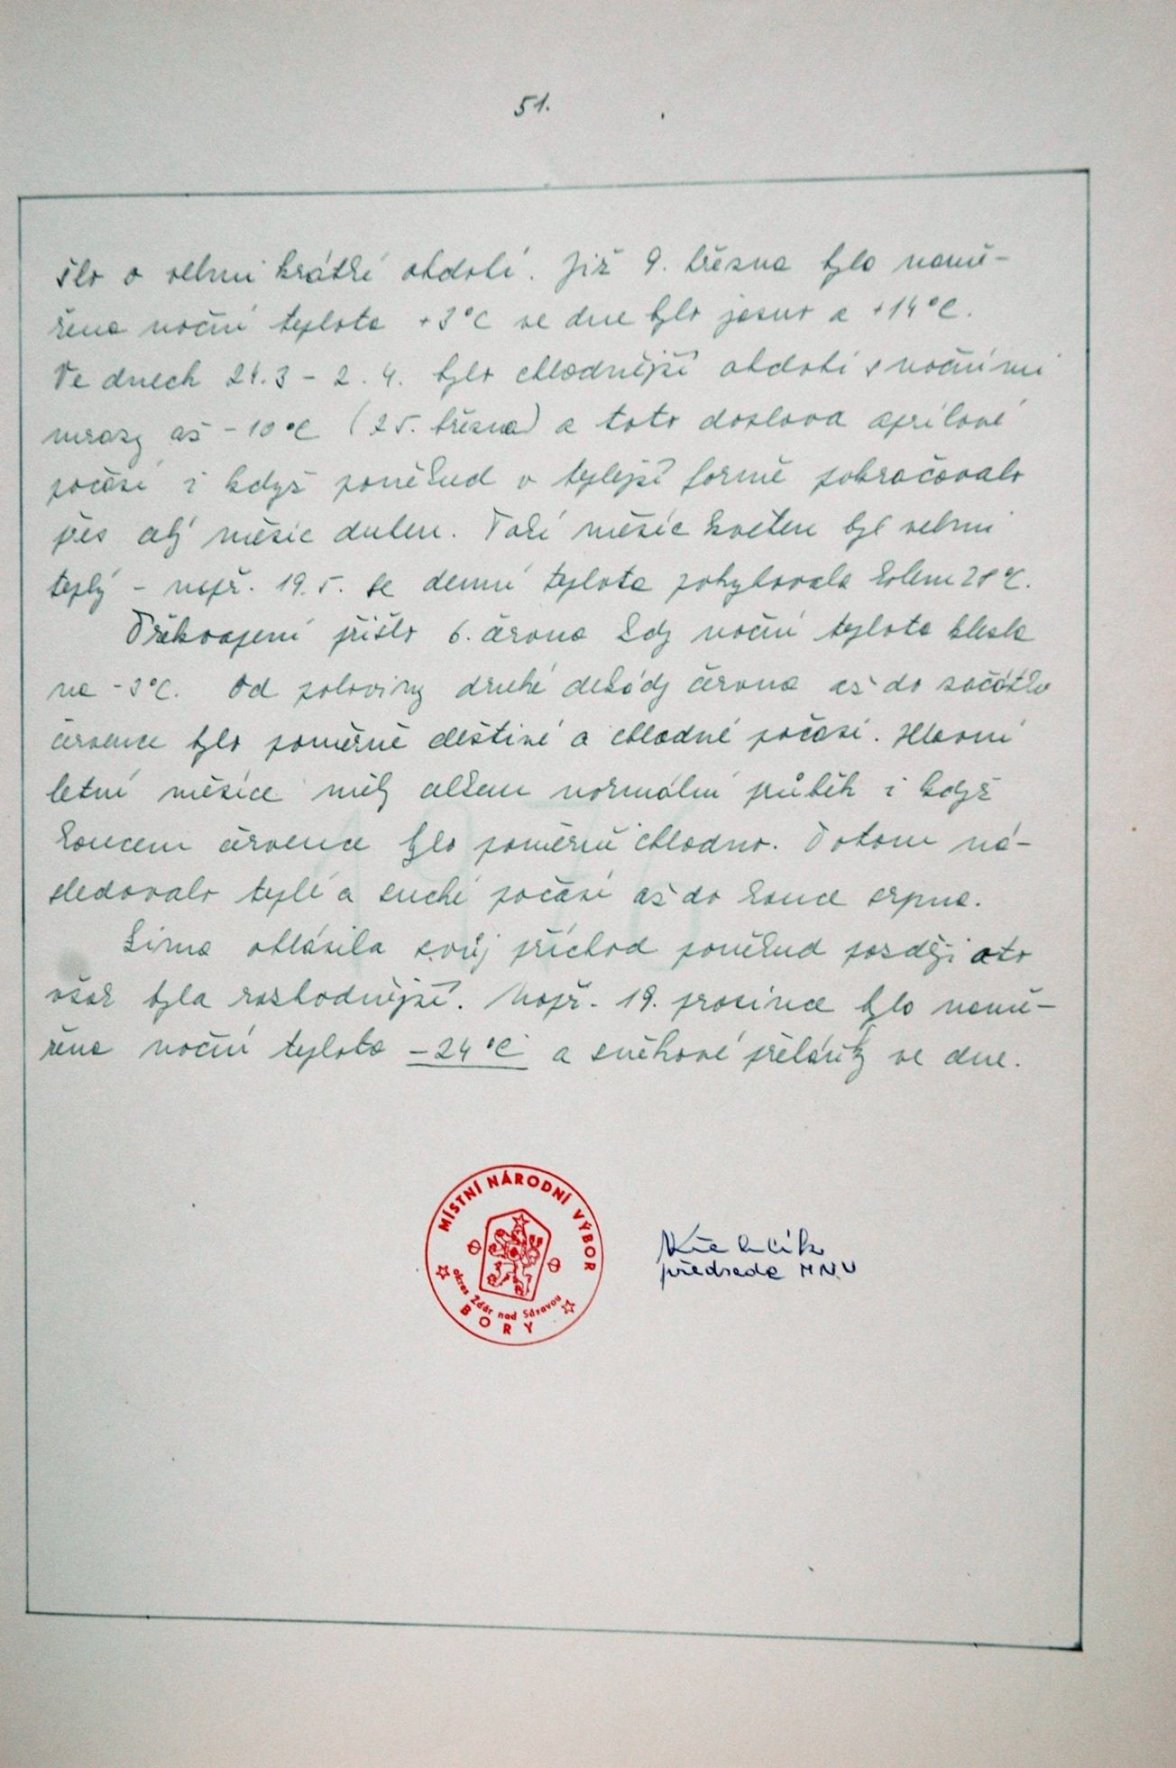 51.
šlo o velmi krátké období. Již 9. března bylo namě-
řena noční teplota +3°C ve dne bylo jasno a +14°C.
Ve dnech 24.3 - 2.4. bylo chladnější období s nočními
mrazy až -10°C (25. března) a toto doslova aprílové
počasí i když poněkud v teplejší formě pokračovalo
přes celý měsíc duben. Také měsíc květen byl velmi
teplý - např. 19.5. se denní teplota pohybovala kolem °C.
Překvapení přišlo 6. června kdy noční teplota klesla
na -3°C. Od poloviny druhé dekády června až do začátku
července bylo poměrně deštivé a chladné počasí. Hlavní
letní měsíce měly celkem normální průběh i když
koncem července bylo poměrně chladno. Potom ná-
sledovalo teplé a suché počasí až do konce srpna.
Zima ohlásila svůj příchod poněkud později a to
však byla rozhodnější. Např. 19. prosince bylo namě-
řena noční teplota -24°C a sněhové přeháňky ve dne.
MÍSTNÍ NÁRODNÍ VÝBOR
okres Žďár nad Sázavou
BORY
předseda MNV